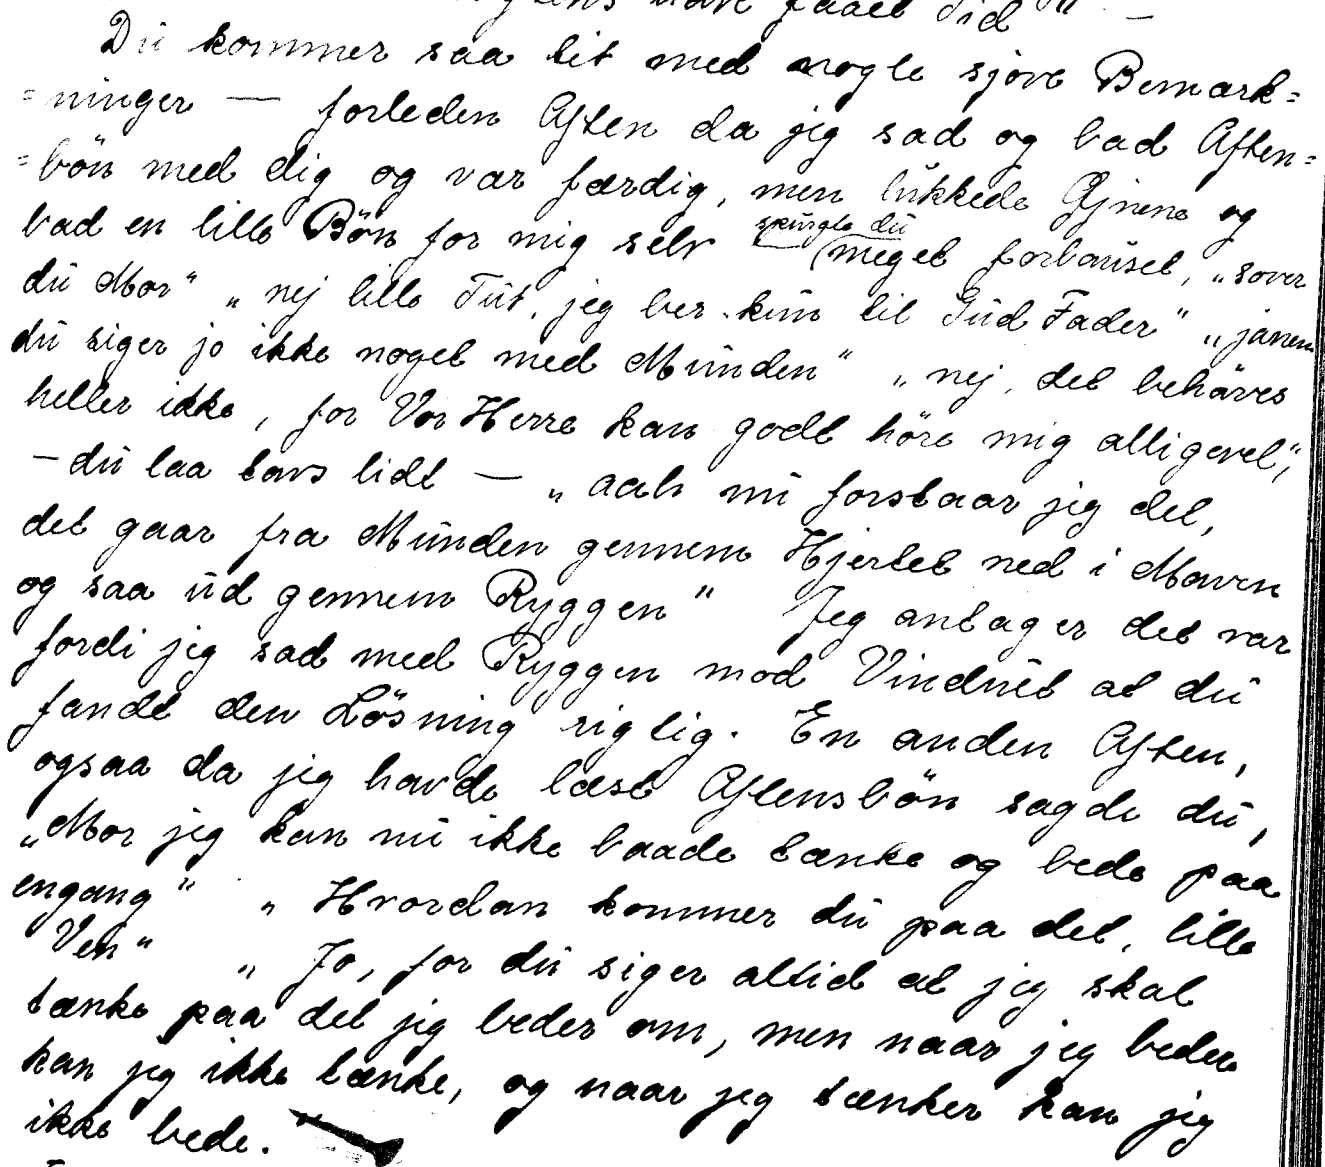 faaet Tid" —
Du kommer saa tit med nogle sjove Bemærk=
=ninger — forleden Aften da jeg sad og bad Aften=
=bön med dig og var færdig, men lukkede Öjnene og
bad en lille Bön for mig selv spurgte du meget forbauset, „sover
du Mor" „nej lille Tut, jeg ber kun til Gud Fader" „jamen
du siger jo ikke noget med Munden" „nej, det behöves
heller ikke, for Vor Herre kan godt höre mig alligevel",
— du laa tavs lidt — „aah nu forstaar jeg det,
det gaar fra Munden gennem Hjertet ned i Maven
og saa ud gennem Ryggen" Jeg antager det var
fordi jeg sad med Ryggen mod Vinduet at du
fandt den Lösning rigtig. En anden Aften,
ogsaa da jeg havde læst Aftensbön sagde du,
„Mor jeg kan nu ikke baade tænke og bede paa
engang" „Hvordan kommer du paa det, lille
Ven" „Jo, for du siger altid at jeg skal
tænke paa det jeg beder om, men naar jeg beder
kan jeg ikke tænke, og naar jeg tænker kan jeg
ikke bede."